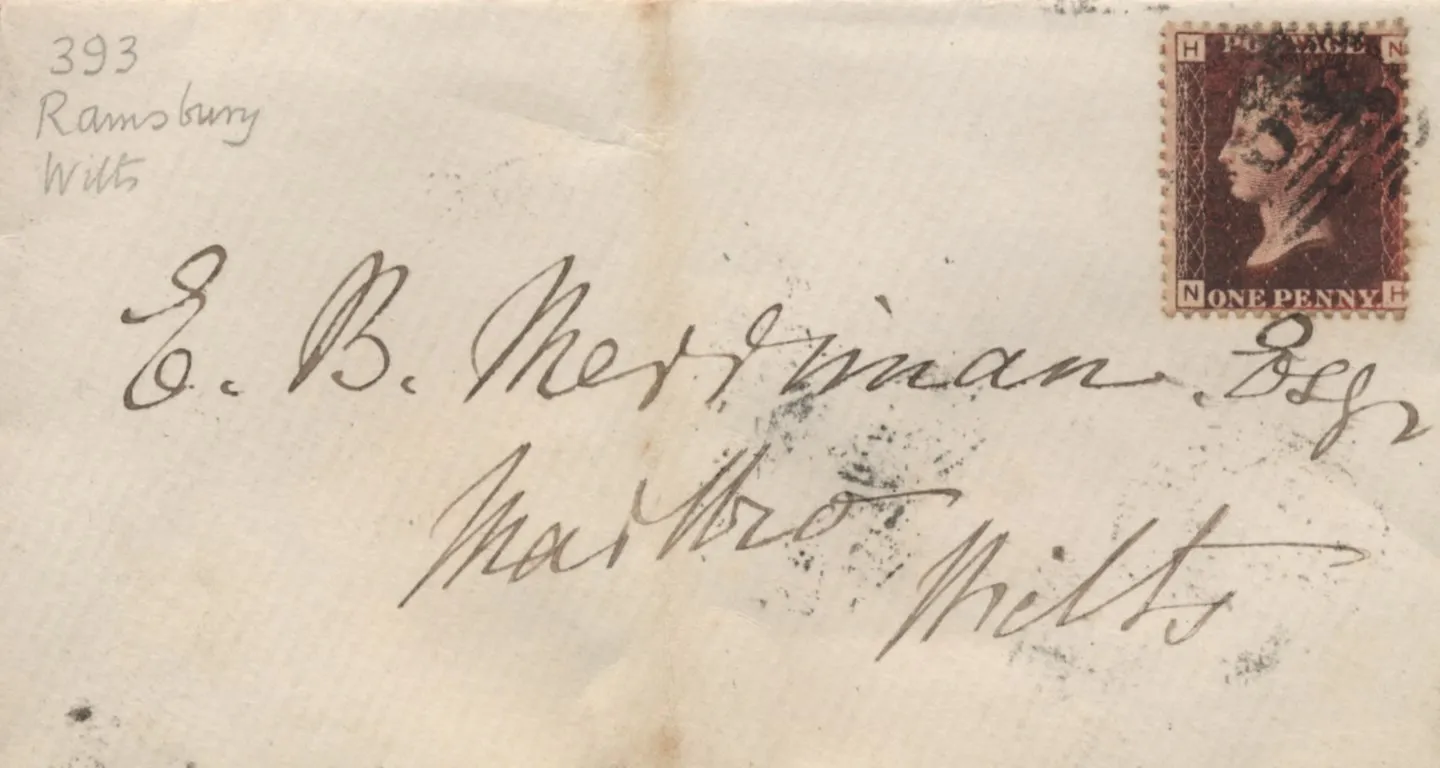 393
Ramsbury
Wilts
H POSTAGE N
N ONE PENNY. H
E. B. Merriman Esqr
Marlbro
Wilts